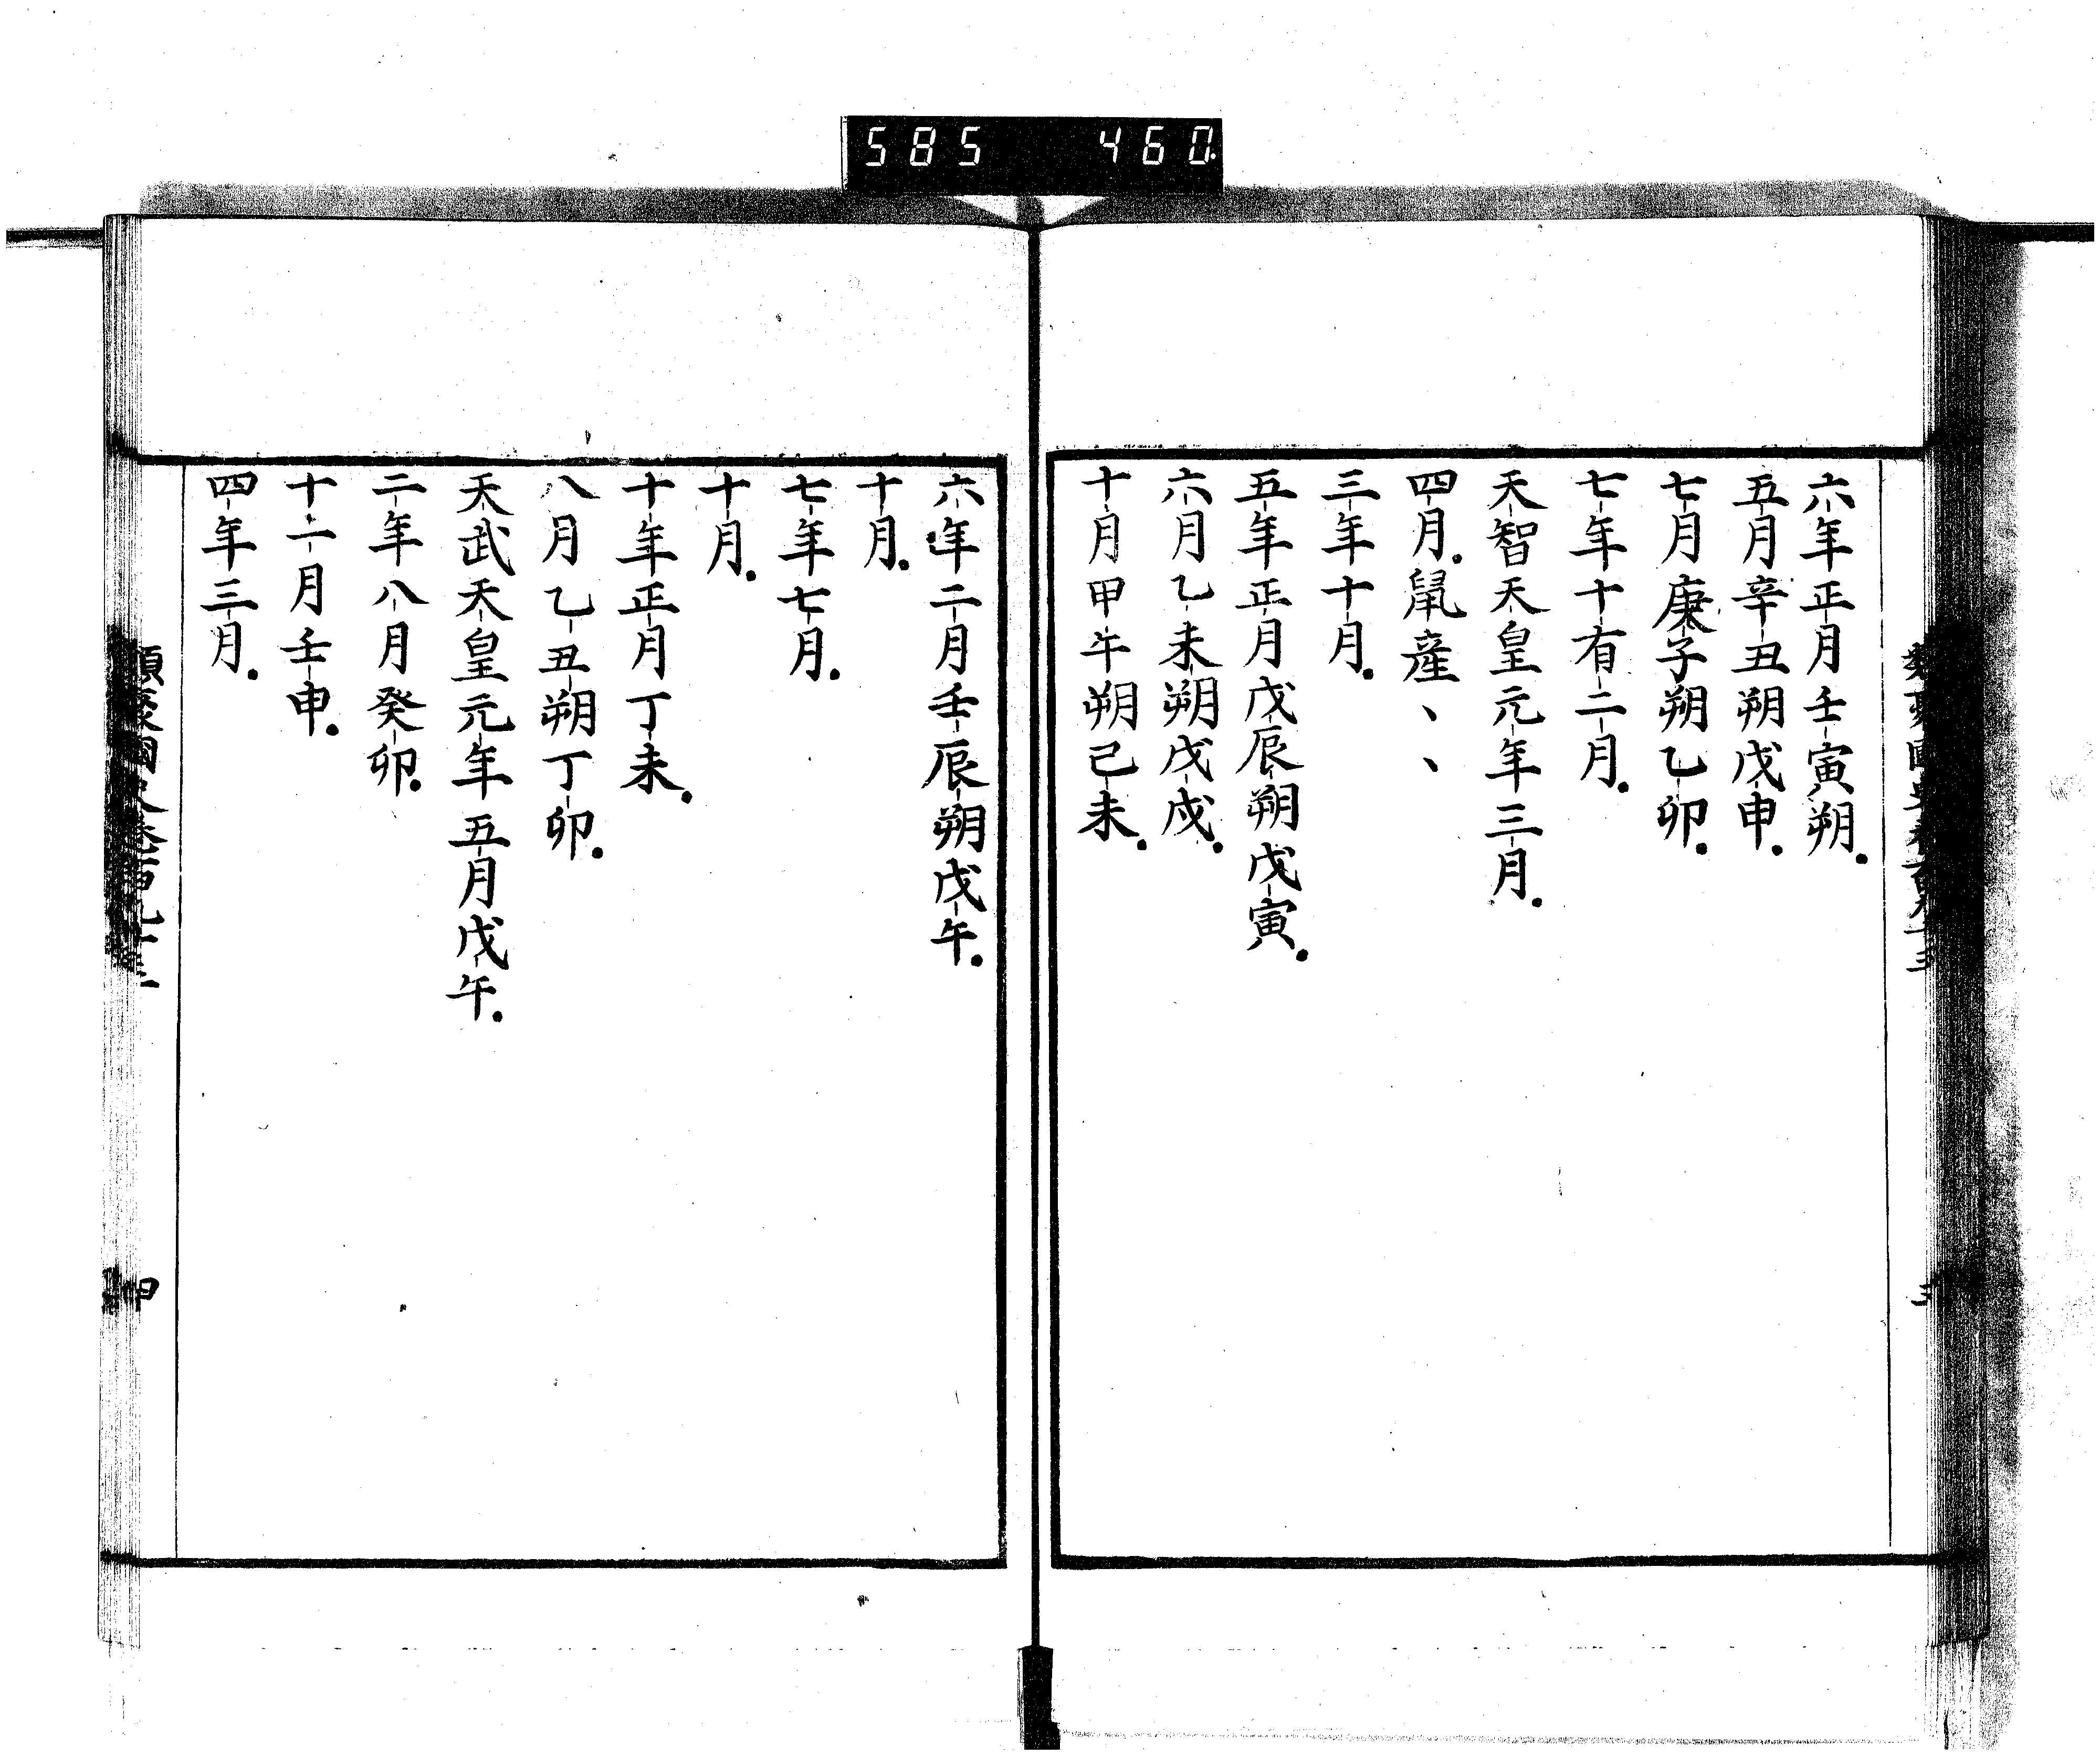 585 460
六年正月壬寅朔.
五月辛丑朔戊申.
七月庚子朔乙卯.
七年十有二月.
天智天皇元年三月.
四月.鼠産、、
三年十月.
五年正月戊辰朔戊寅.
六月乙未朔戊戌.
十月甲午朔己未.
六年二月壬辰朔戊午.
十月.
七年七月.
十月.
十年正月丁未.
八月乙丑朔丁卯.
天武天皇元年五月戊午.
二年八月癸卯.
十一月壬申.
四年三月.